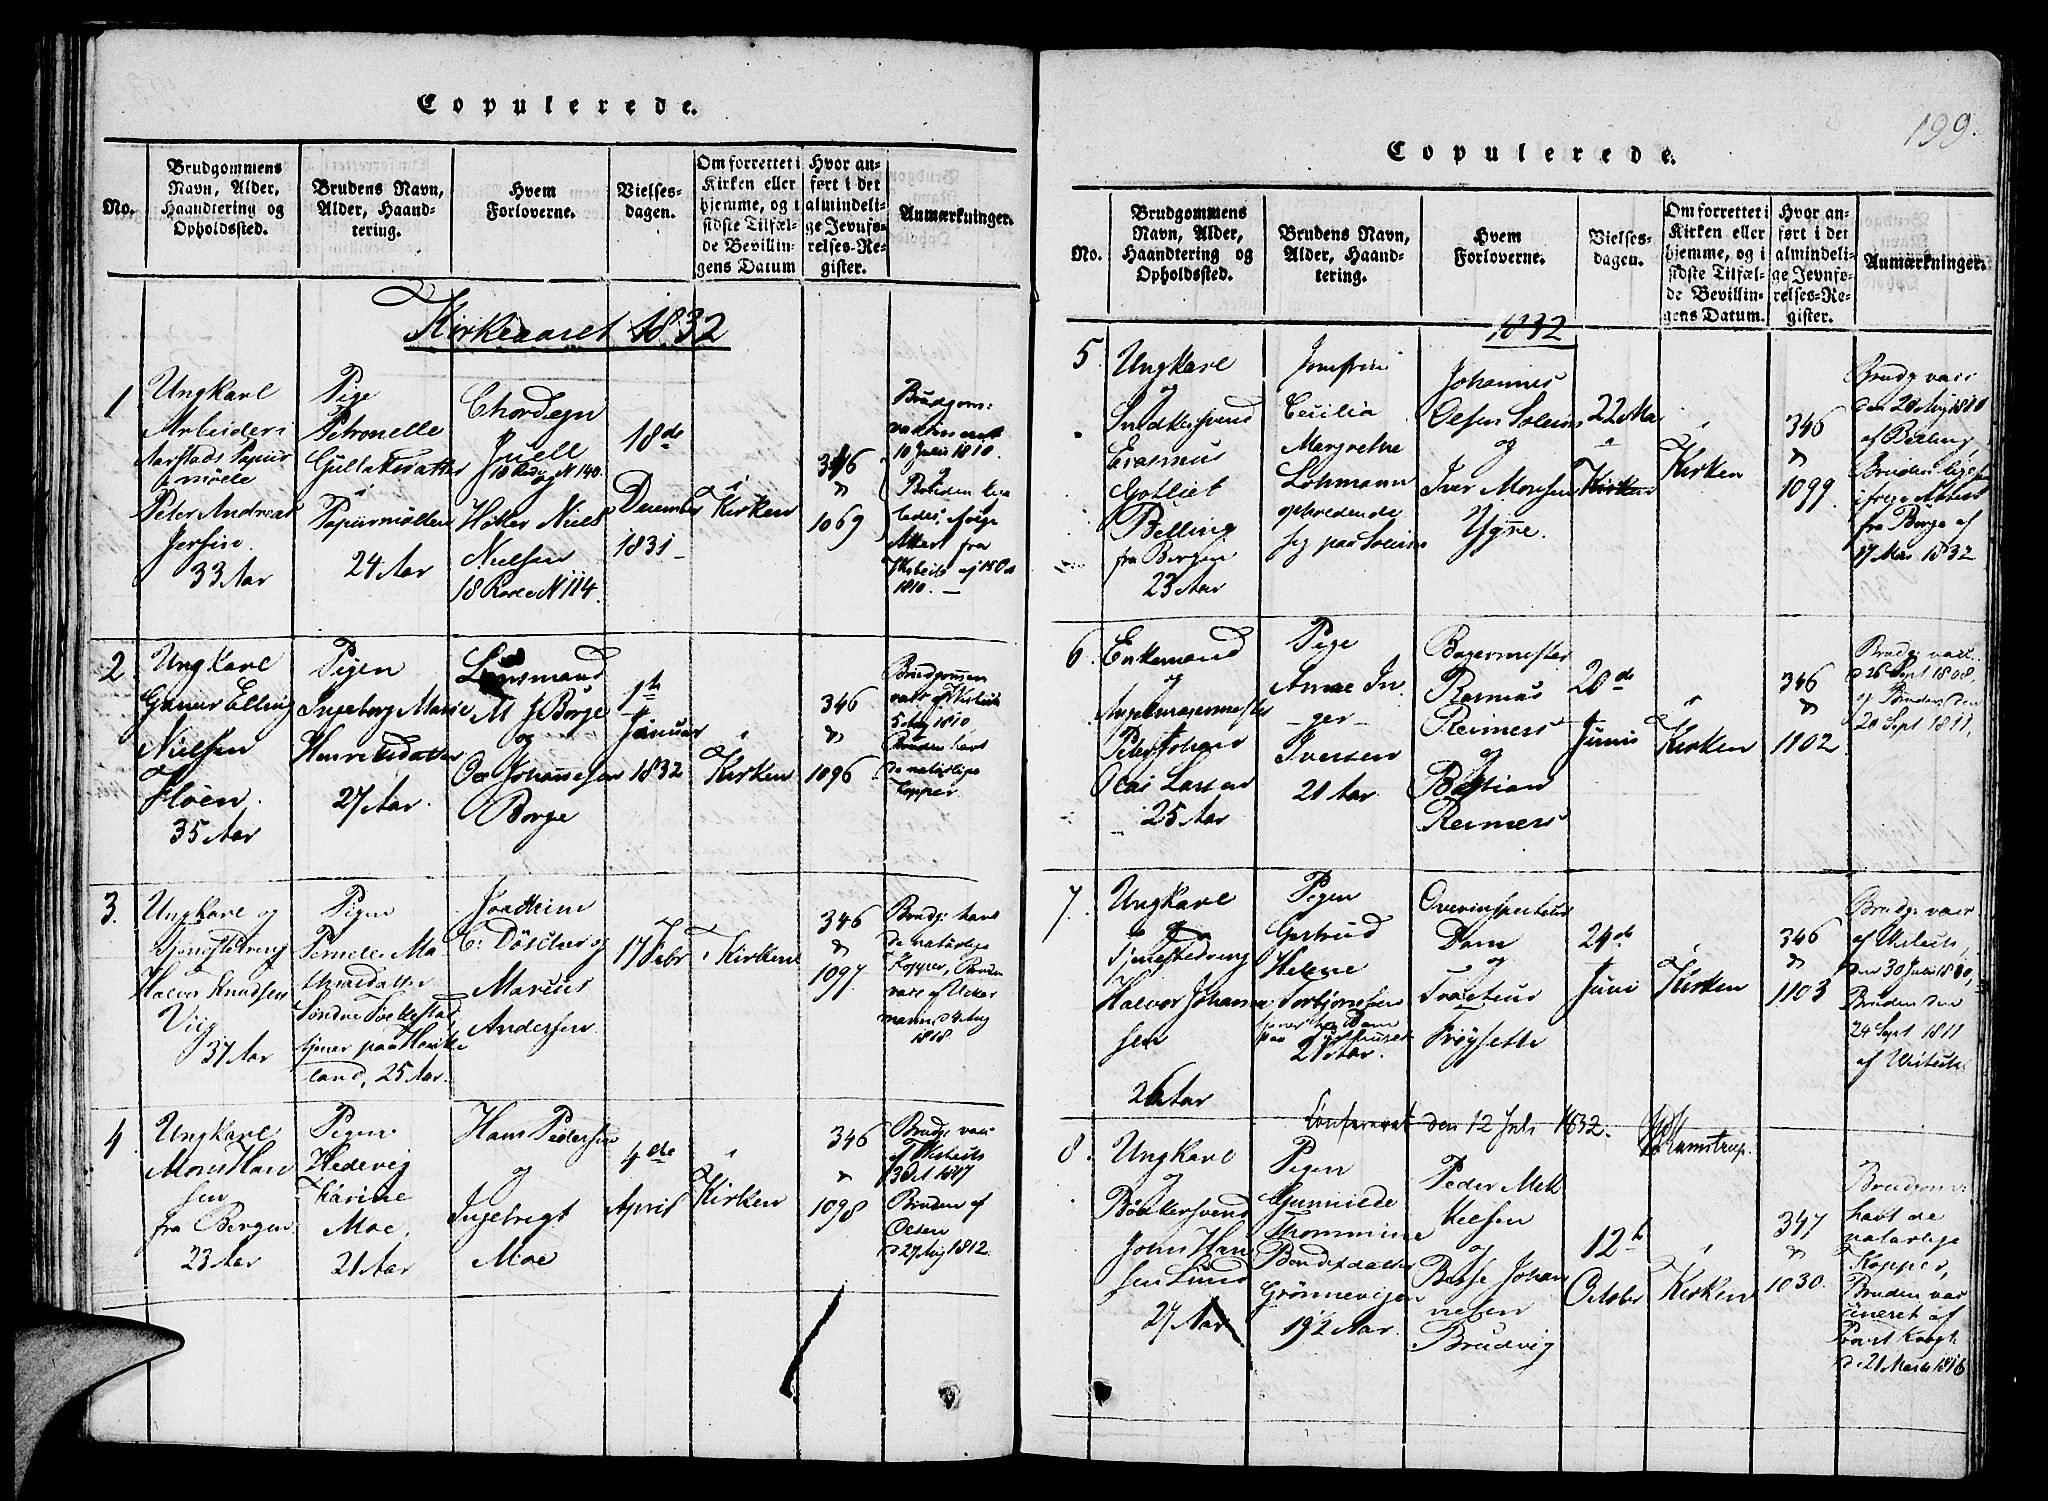 Copulerede.
No.
Brudgommens
Navn, Alder,
Haandtering og
Opholdssted.
Brudens Navn,
Alder, Haand-
tering.
Hvem
Forloverne.
Vielses-
dagen.
Om forrettet i
Kirken eller
hjemme, og i
sidste Tilfæl-
de Bevillin-
gens Datum
Hvor an-
ført i det
almindeli-
ge Jevnfø-
relses-Re-
gister.
Anmærkninger.
Kirkeaaret 1832
1
Ungkarl
Arbeider i
Aarstads Papir
mølle
Peter Andreas
33 Aar
Pige
Petronelle
Papirmøllen
24 Aar
Chordegn
Juell
10 Rode N 140.
og
Høker Niels
Nielsen
18 Rode N 114.
18de
December
1831
i
Kirken
346
1069
Brudgom:
10 Julii 1810.
Bruden lige
ledes
fra
1810.
2
Ungkarl
Elling
Nielsen
Fløen.
35 Aar
Pigen
Ingeborg Marie
Henriksdatter
27 Aar.
Lensmand
M J Borge
og
Ole Johannesen
Borge
1te
Januar
1832
i
Kirken
346
1096
Brudgommen
1810
Bruden havt
de naturlige
Kopper.
3.
Ungkarl og
Halvor Knudsen
Viig
37 Aar
Pigen
Pernelle Ma
thisdatter
tjener paa Hauke
land, 25 Aar.
Joachim
C: Döscher og
Marcus
Andersen
17 Febr
i Kirken
346
1097
Brudg: havt
de naturlige
Kopper, Bruden
vacc af
1818
4
Ungkarl
Mons Han
sen
fra Bergen
23 Aar
Pigen
Hedevig
Karine
Moe,
21 Aar
Hans Pedersen
og
Ingebrigt
Moe
4de
April
i
Kirken
346
1098
Brudg: vacc
Bruden af
Olsen
d 27 Aug 1812.
199.
Copulerede.
No.
Brudgommens
Navn, Alder,
Haandtering og
Opholdssted.
Brudens Navn,
Alder, Haand-
tering.
Hvem
Forloverne.
Vielses-
dagen.
Om forrettet i
Kirken eller
hjemme, og i
sidste Tilfæl-
de Bevillin-
gens Datum.
Hvor an-
ført i det
almindeli-
ge Jevnfø-
relses-Re-
gister.
Anmærkninger.
1832
5
Ungkarl
og
Snedkersvend
Erasmus
Gotliet
Belling
fra Bergen
23 Aar
Jomfrue
Cecilia
Margrethe
Lohmann
opholdende
sig paa Solem
Johannes
Olsen Solem
og
Iver Monsen
Ygre.
22 Ma
i
Kirken
i
Kirken
346
1099
Brudg vacc
den 20 Aug 1810
Bruden lige
fra Borge af
17 Mai 1832
6
Enkemand
og
25 Aar
Pige
Anne In
ger
Iversen
21 Aar
Bagermester
Rasmus
Reimers
og
Bastian
Reimers
20de
Junii
i
Kirken
346
1102
Brudg vacc
d 26 Sept 1808,
og Bruden den
20 Sept 1811.
7.
Ungkarl
og
Halvor Johanne
sen
26 Aar
Pigen
Gertrud
Helene
Torbjørnsen
tjener hos Dam
21 Aar.
Overinspecteur
Dam
og
Tracteur
Frøysette
24de
Juni
i
Kirken
346
1103
Brudg: vacc
den 30 Julii 1810,
Bruden den
24 Sept 1811
Confereret den 12 Juli 1832.
Kamstrup.
8.
Ungkarl
og
Bødkersvend
John Han
sen Lund
27 Aar
Pigen
Gunnilde
Thommine
Bendixdatter
Grønnevigen
19½ Aar.
Peder Mik
kelsen
og
Johan
nesen
Brudvig
12te
Octobr
i
Kirken
347
1030.
Brudgom:
havt de
naturlige
Kopper,
Bruden vac
cineret af
Provst
d 21 Marts 1816